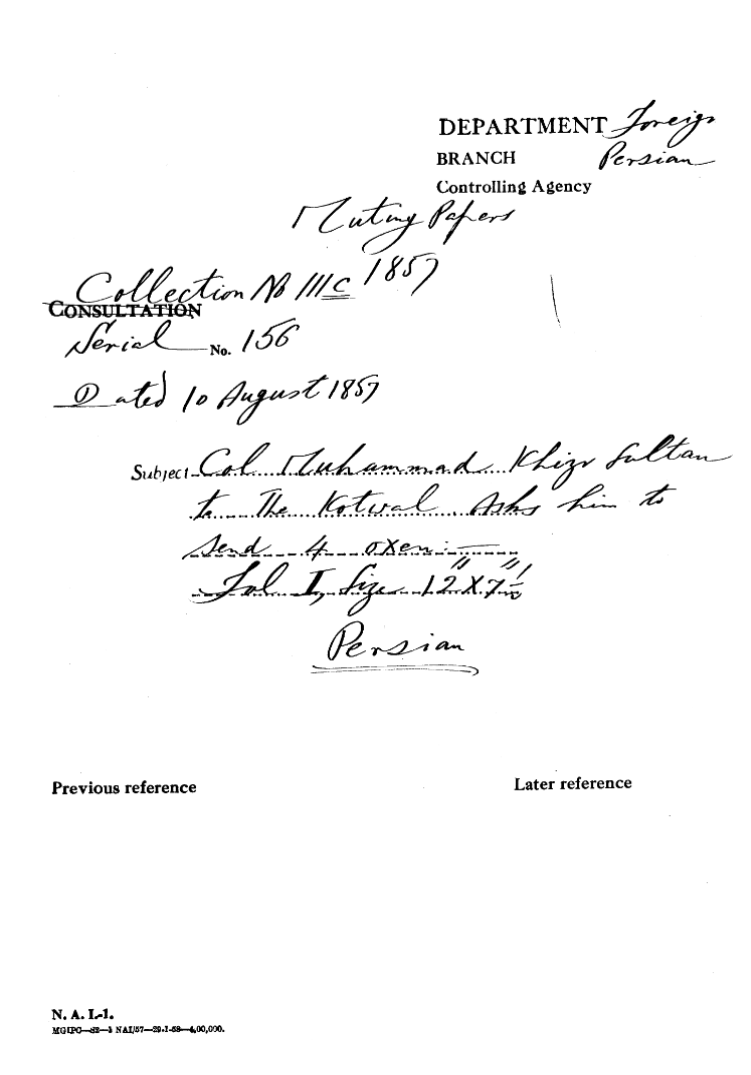 DEPARTMENT Foreign
BRANCH Persian
Controlling Agency
Mutiny Papers
Collection No IIIC 1857
CONSULTATION
Serial No. 156
Dated 10 August 1857
Subject Col Muhammad Khizr Sultan
to The Kotwal Asks him to
send 4 oxen:—
Fol I, Size 12" X 7½"
Persian
Previous reference
Later reference
N. A. I.-1.
MGIPC—S2—3 NAI/57—29-1-58—4,00,000.